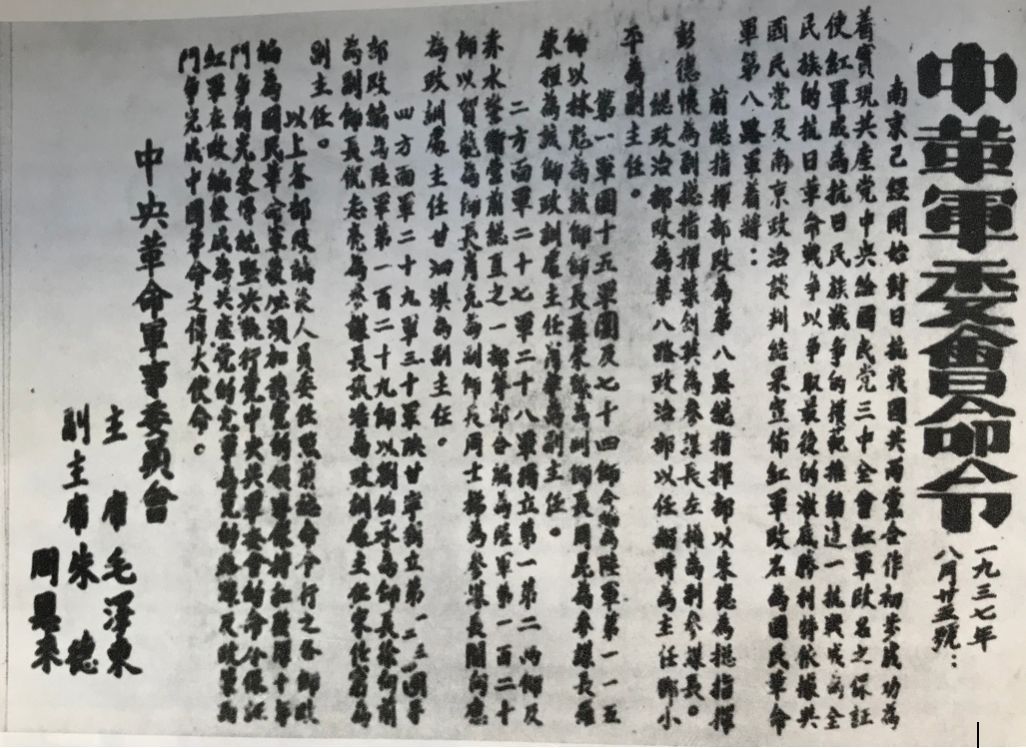 中華軍委會命令
一九三七年
八月廿五號：
南京已經開始對日抗戰國共兩黨合作初步成功為
着實現共產党中央給國民党三中全會紅軍改名之保証
使紅軍成為抗日民族戰爭的模范推動這一抗戰成為全
民族的抗日革命戰爭以爭取最後的澈底勝利特依據共
國民党及南京政治談判結果宣佈紅軍改名為國民革命
軍第八路軍着將：
前總指揮部改為第八路總指揮部以朱德為總指揮
彭德懷為副總指揮葉劍英為參謀長左權為副參謀長。
總政治部改為第八路政治部以任弼時為主任鄧小
平為副主任。
第一軍團十五軍團及七十四師合編為陸軍第一一五
師以林彪為該師師長聶榮臻為副師長周昆為參謀長羅
榮桓為該師政訓處主任蕭華為副主任。
二方面軍二十七軍二十八軍獨立第一第二兩師及
赤水警衛營前總直之一部等部合編為陸軍第一百二十
師以賀龍為師長肖克為副師長周士梯為參謀長關向應
為政訓處主任甘泗淇為副主任。
四方面軍二十九軍三十軍陝甘寧獨立第一二三四團等
部改編為陸軍第一百二十九師以劉伯承為師長徐向前
為副師長倪志亮為參謀長張浩為政訓處主任宋任窮為
副主任。
以上各部改編後人員委任照前總命令行之各師改
編為國民革命軍後必須加強党的領導保持和發揚十年
鬥爭的光榮傳統堅決執行党中央與軍委會的命令保証
紅軍在改編後成為共產党的党軍為党的路線及政策而
鬥爭完成中國革命之偉大使命。
中央革命軍事委員会
主席毛澤東
副主席朱德
周恩來